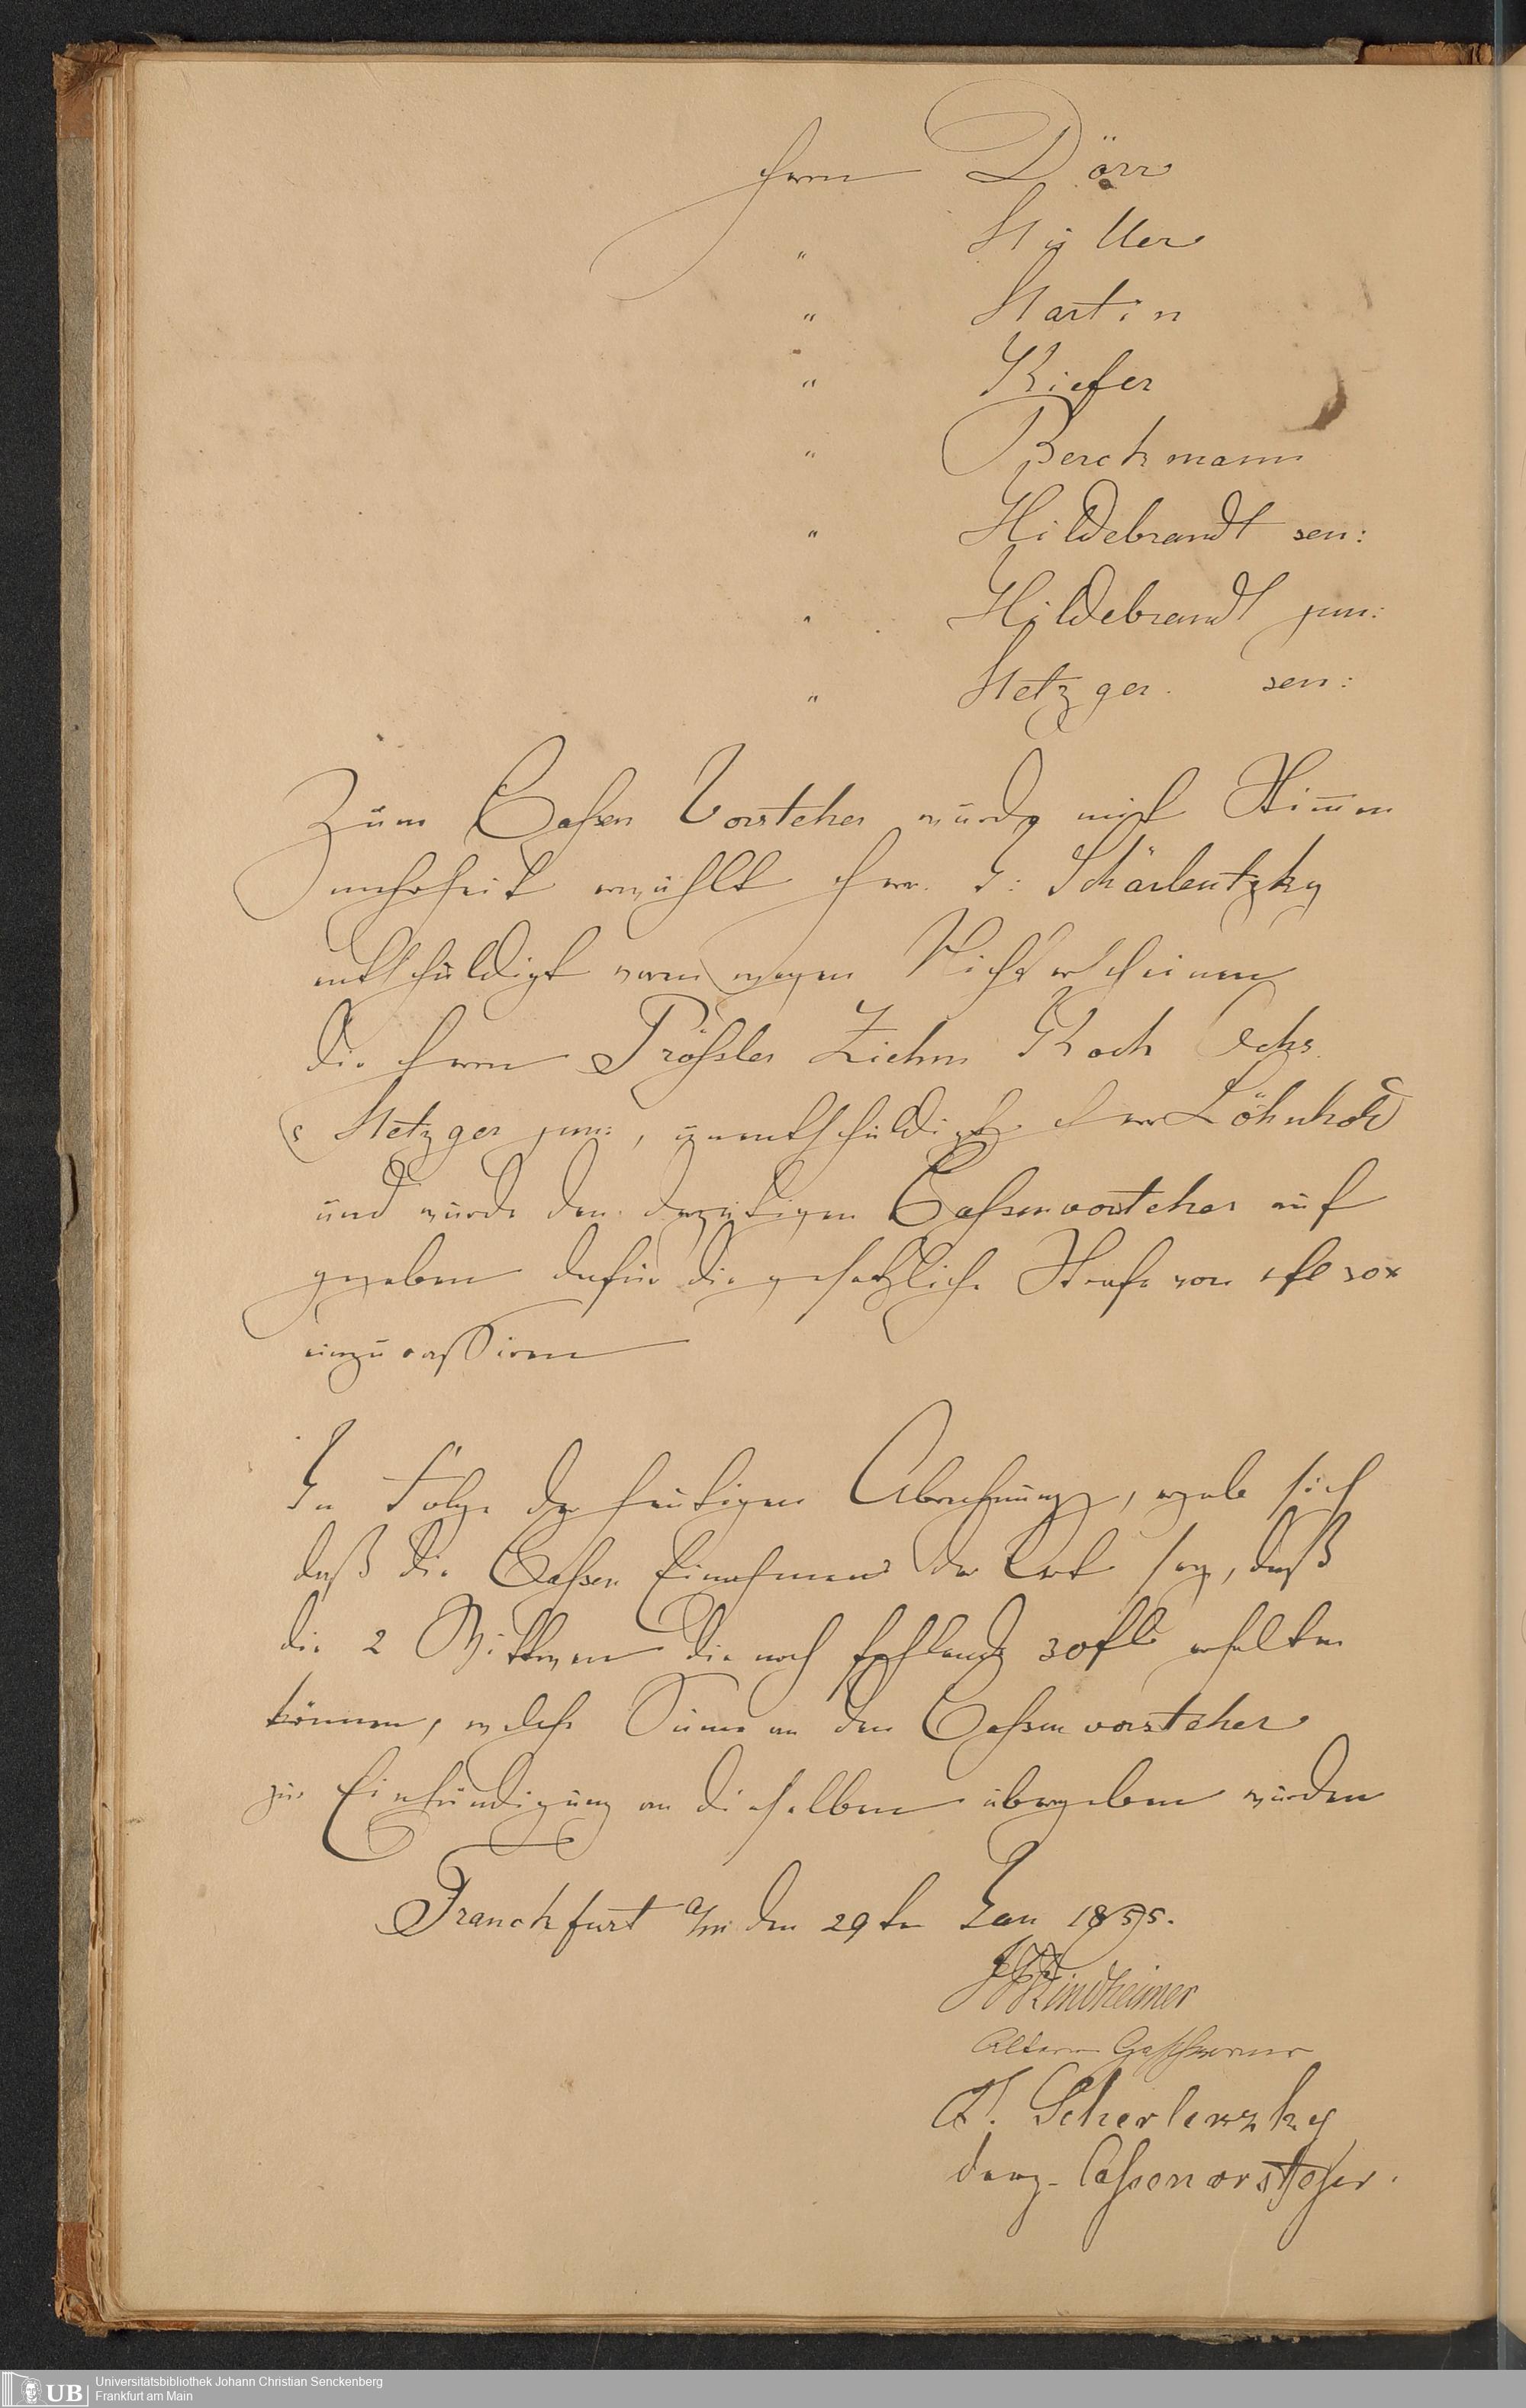 Herrn Dörr
" Müller
" Martin
" Kiefer
" Berckmann
" Hildebrandt sen:
" Hildebrandt jun:
" Metzger sen:
Zum Cassen Vorsteher wurde mit Stimmen
mehrheit erwählt Herr. Schärlentzky
entschuldigt waren wegen Nichterscheinen
die Herrn Prössler Ziehn Koch Ochs
Metzger jun:, unentschuldigt Herr Löhnholdt
und wurde den derzeitigen Cassenvorsteher auf
gegeben dafür die gesetzliche Strafe von 1 fl 30 x
einzucassiren
In Folge der heutigen Abrechnung, ergab sich
daß die Cassen Einnahmen der Art sey, daß
die 2 Wittwen die noch fehlende 30 fl erhalten
können, welche Sume an den Cassenvorsteher
zur Einhändigung an dieselben übergeben wurden
Franckfurt a/m den 29ten Jan 1855.
Windheimer
Alterer Geschworner
Scherlenzky
derz. Cassenvorsteher.
Universitätsbibliothek Johann Christian Senckenberg
UB Frankfurt am Main